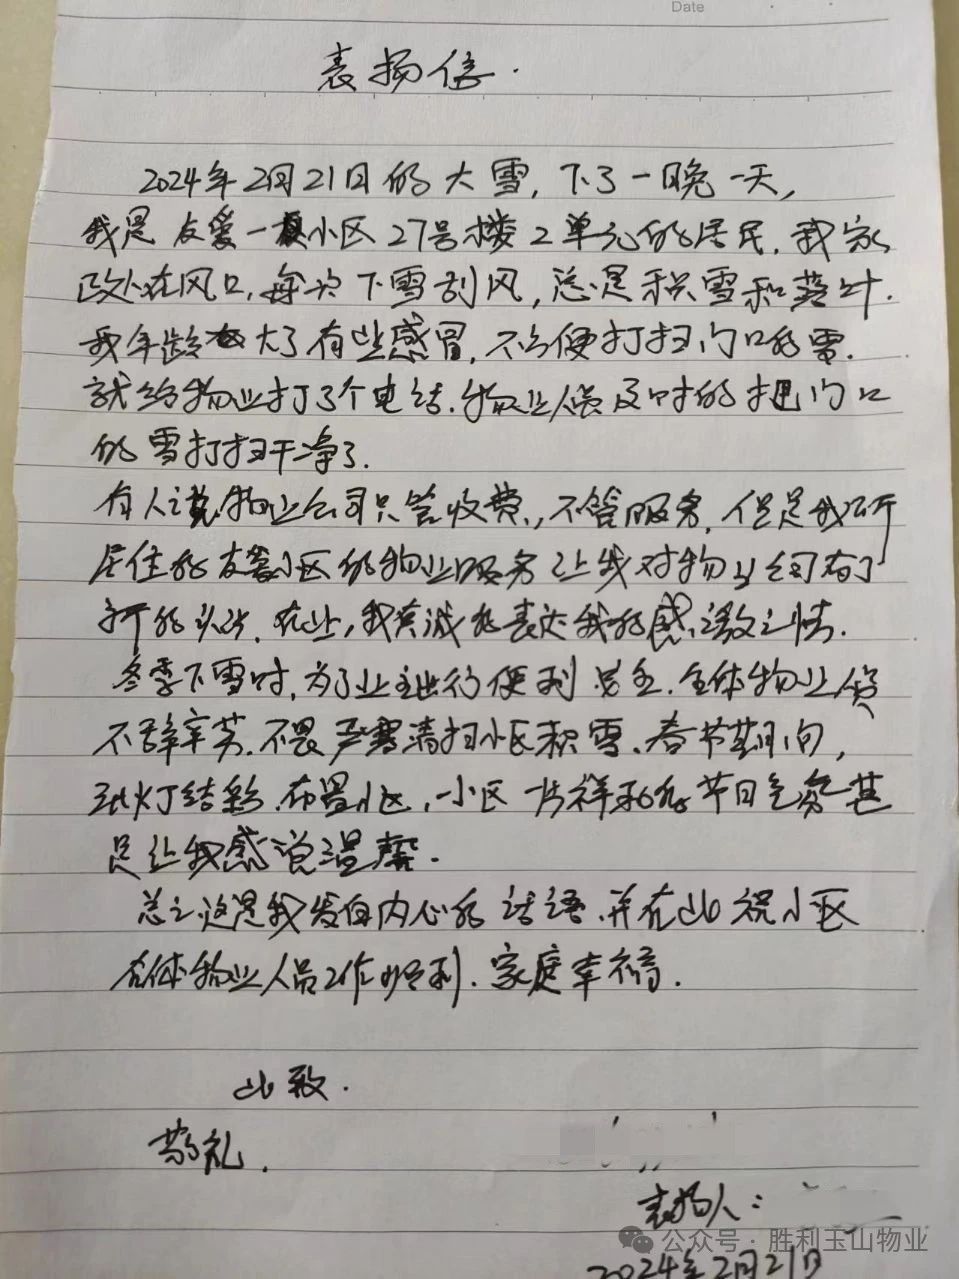 Date
表扬信.
2024年2月21日的大雪,下了一晚一天,
我是友爱一小区27号楼2单元的居民,我家
正处在风口,每次下雪刮风,总是积雪和落叶.
我年龄大了有些感冒,不方便打扫门口的雪.
就给物业打了个电话.物业人员及时的把门口
的雪打扫干净了.
有人说物业公司只管收费,不管服务,但是我所
居住的友爱小区的物业服务让我对物业公司有了
新的认识.在此,我真诚的表达我的感激之情.
冬季下雪时,为了业主出行便利安全.全体物业人员
不辞辛苦.不畏严寒清扫小区积雪、春节期间,
张灯结彩.布置小区,小区一片祥和的节日气氛甚
是让我感觉温馨.
总之,这是我发自内心的话语.并在此祝小区
全体物业人员工作顺利.家庭幸福.
此致.
敬礼.
表扬人:
公众号·胜利玉山物业
2024年2月21日